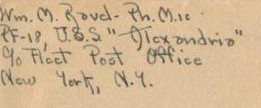 Wm. M. Ravel - Ph. M. 1c
PF-18, U.S.S "Alexandria"
c/o Fleet Post Office
New York, N.Y.